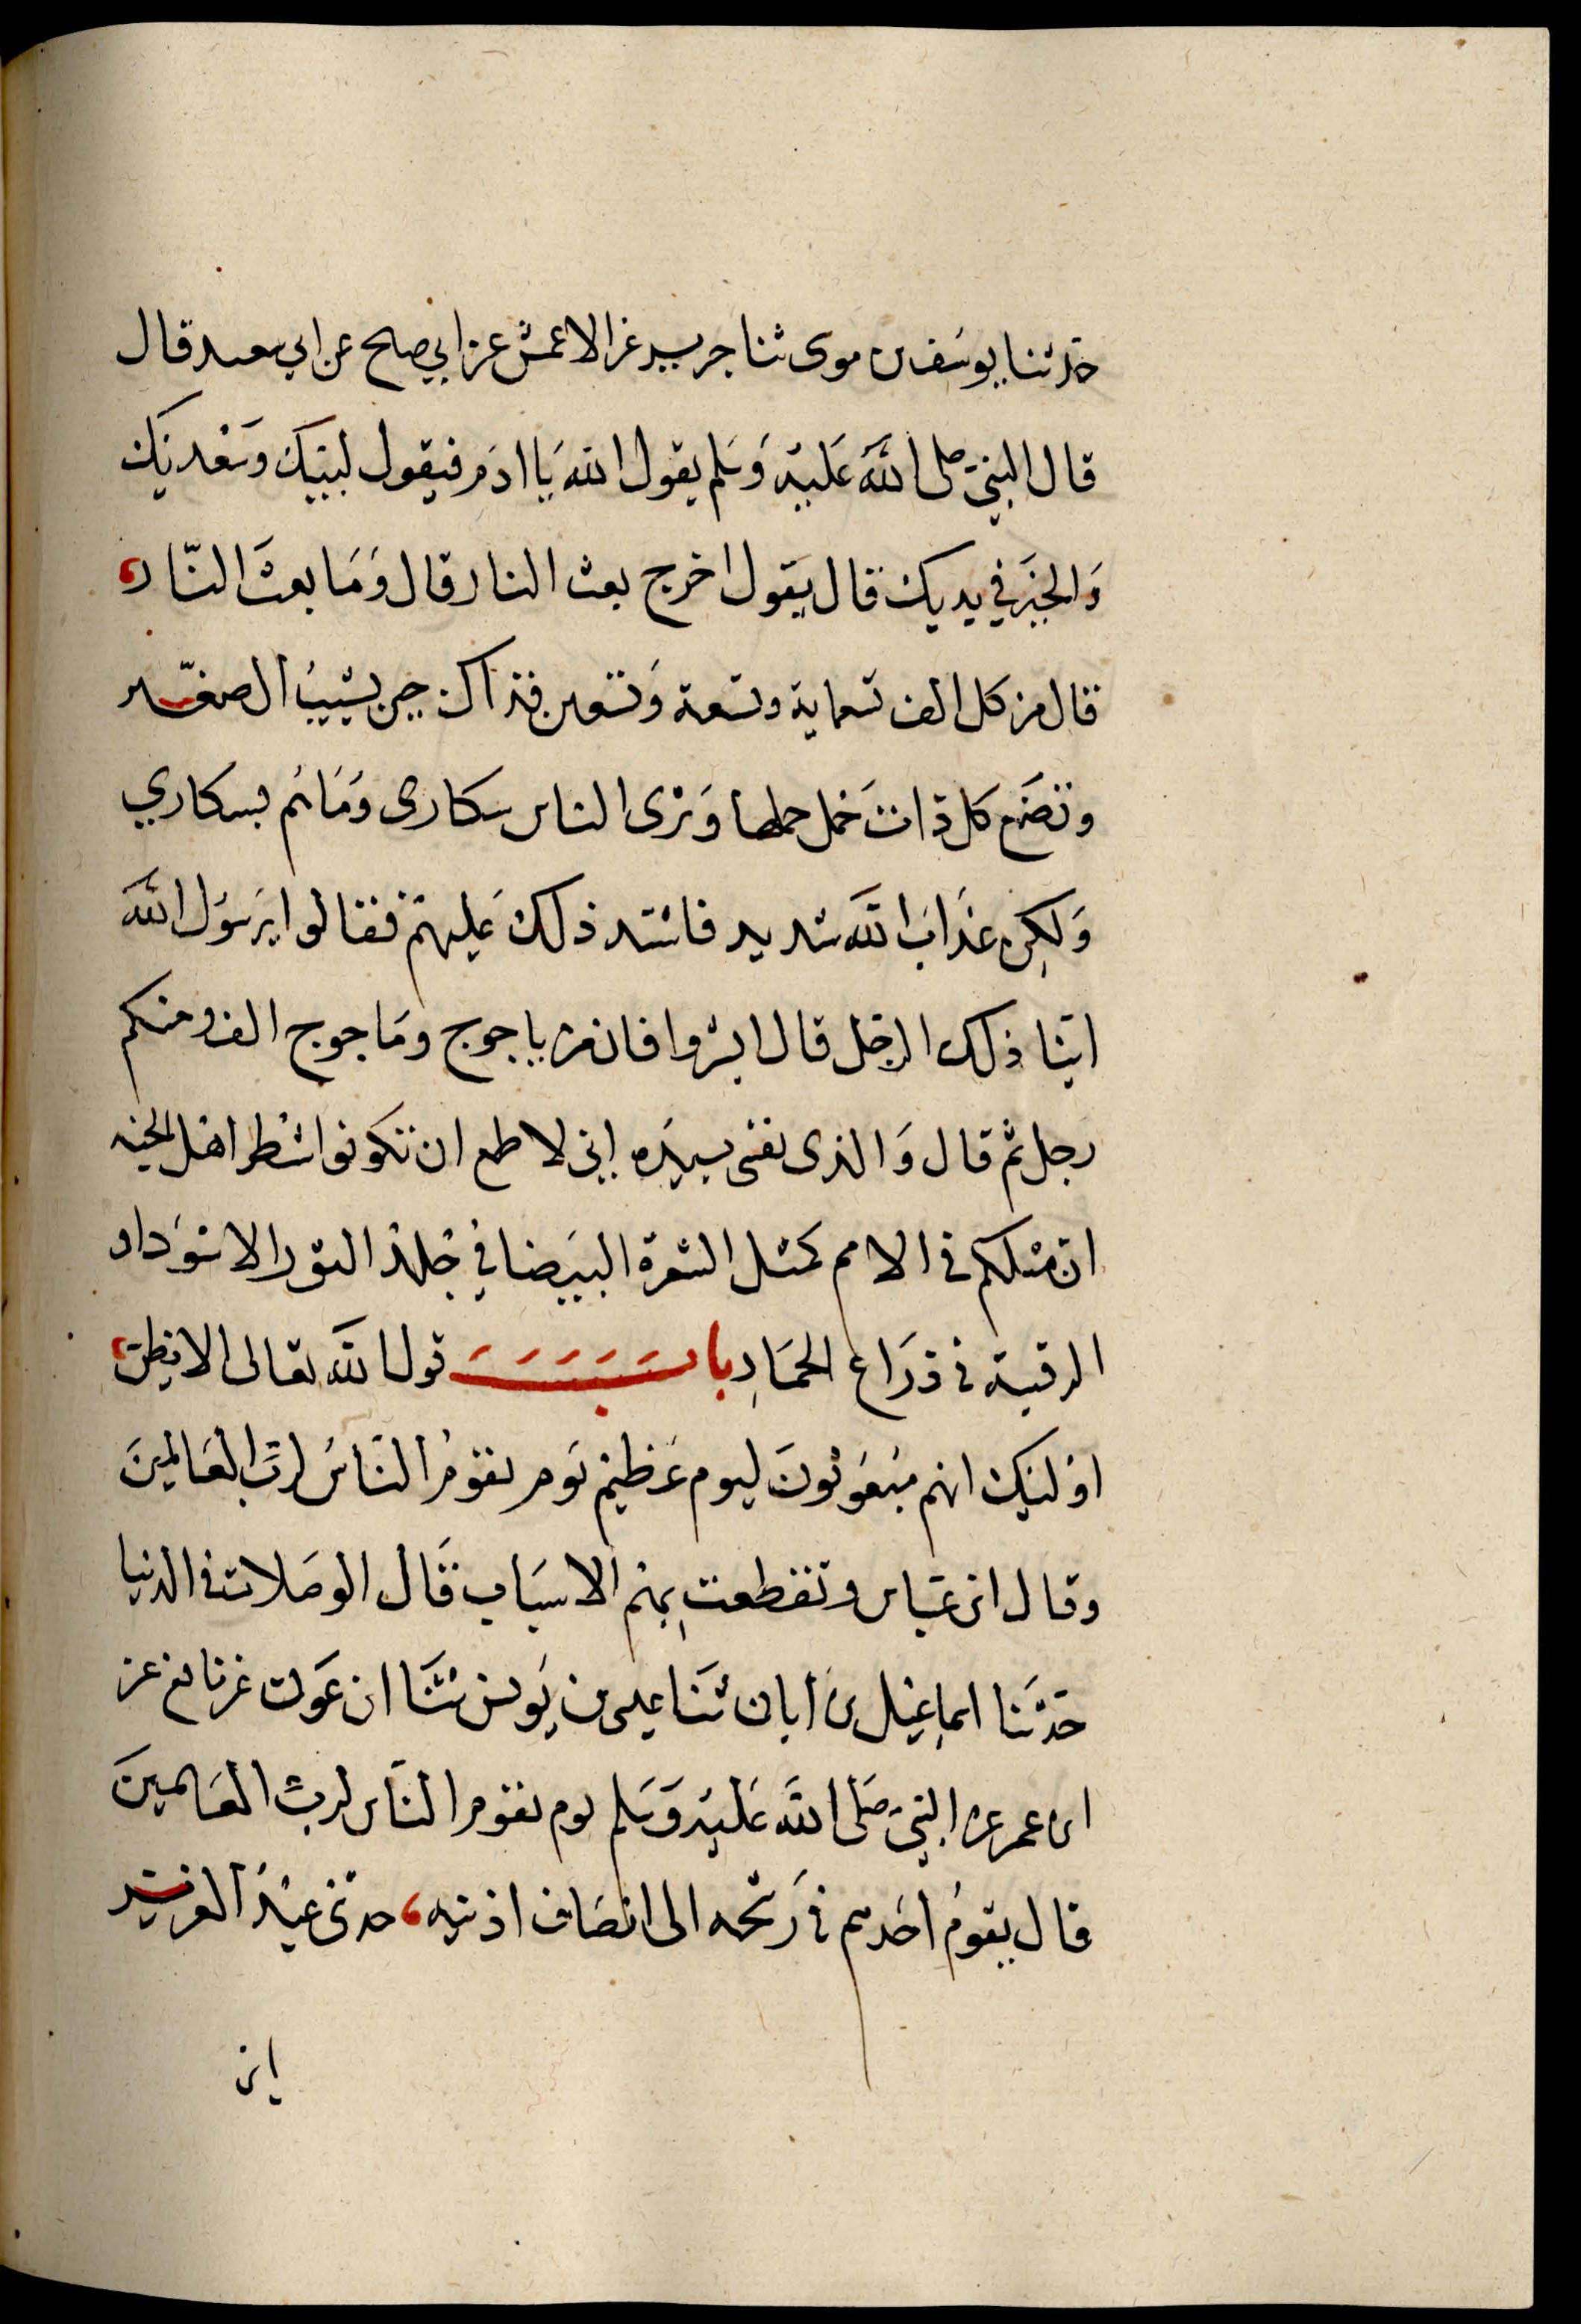 حدثنا يوسف بن موسى ثنا جرير عن الاعمش عن ابي صلح عن ابي سعيد قال
قال النبي صلى الله عليه وسلم يقول الله يا ادم فيقول لبيك وسعديك
والخير في يديك قال يقول اخرج بعث النار قال وما بعث النار
قال من كل الف تسعماية وتسعة وتسعين فذاك حين يشيب الصغير
وتضع كل ذات حمل حملها وترى الناس سكارى وما هم بسكاري
ولكن عذاب الله شديد فاشتد ذلك عليهم فقالوا يرسول الله
اينا ذلك الرجل قال ابشروا فان من ياجوج وماجوج الف ومنكم
رجل ثم قال والذى نفسى بيده اني لاطمع ان تكونوا شطر اهل الجنه
ان مثلكم في الامم كمثل الشعرة البيضا في جلد الثور الاسود او
الرقبة في ذراع الحمار باب قول الله تعالى الا يظن
اولئك انهم مبعوثون ليوم عظيم يوم يقوم الناس لرب العالمين
وقال ابن عباس وتقطعت بهم الاسباب قال الوصلات في الدنيا
حدثنا اسماعيل بن ابان ثنا عيسى بن يونس ثنا ابن عون عن نافع عن
ابن عمر عن النبي صلى الله عليه وسلم يوم يقوم الناس لرب العالمين
قال يقوم احدهم في رشحه الى انصاف اذنيه حدثنى عبد العزيز
ابن